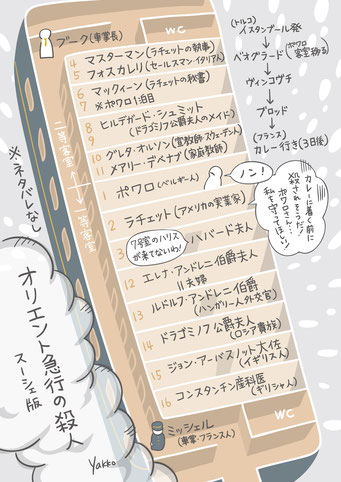 WC
ブーク(車掌長)
4 マスターマン(ラチェットの執事)
5 フォスカレリ(セールスマン・イタリア人)
6 マックィーン(ラチェットの秘書)
7 ※ポワロ1泊目
8 ヒルデガード・シュミット
9 (ドラゴミノフ公爵夫人のメイド)
10 グレタ・オルソン(宣教師・スウェーデン人)
11 メアリー・デベナブ(家庭教師)
二等客室
一等客室
1 ポワロ(ベルギー人)
2 ラチェット(アメリカの実業家)
3 ハバード夫人
12 エレナ・アンドレニ伯爵夫人
＝夫婦
13 ルドルフ・アンドレニ伯爵
(ハンガリー人外交官)
14 ドラゴミノフ公爵夫人
(ロシア貴族)
15 ジョン・アーバスノット大佐
(イギリス人)
16 コンスタンチン産科医
(ギリシャ人)
WC
ミッシェル
(車掌・フランス人)
(トルコ)
イスタンブール発
↓
ベオグラード(ポワロ客室移る)
↓
ヴィンコヴチ
↓
ブロッド
↓
(フランス)
カレー行き(3日後)
ノン!
カレーに着く前に
殺されそうだ!
ポワロさん…
私を守ってほしい!
7号室のハリスが来てないわ!
※ネタバレなし
オリエント急行の殺人
スーシェ版
Yakko